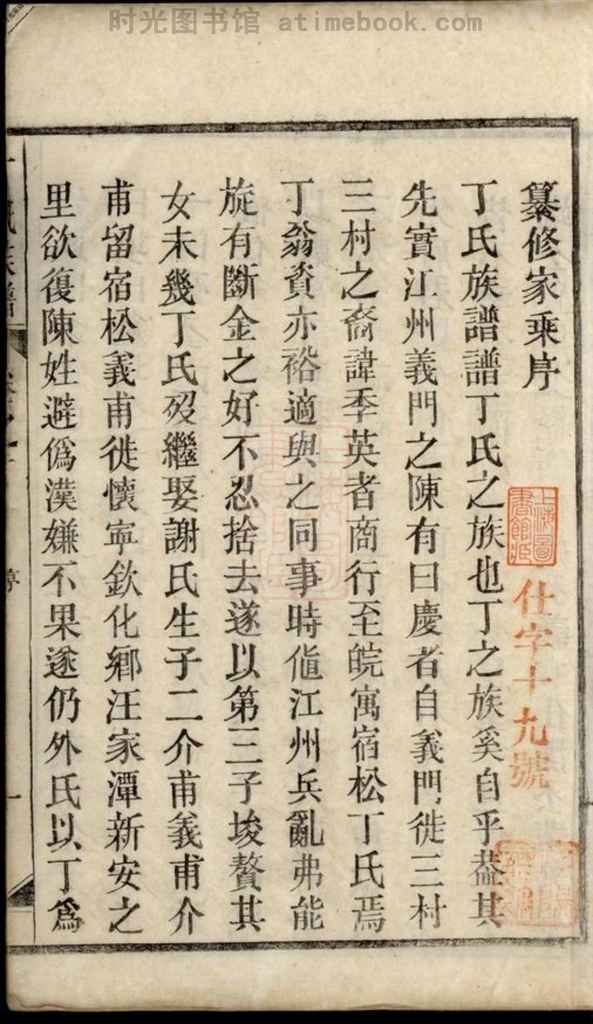 时光图书馆 atimebook.com
纂修家乘序
丁氏族譜譜丁氏之族也丁之族奚自乎葢其
先實江州義門之陳有曰慶者自義門徙三村
三村之裔諱季英者商行至皖寓宿松丁氏焉
丁翁資亦裕適與之同事時值江州兵亂弗能
旋有斷金之好不忍捨去遂以第三子埈贅其
女未幾丁氏歿繼娶謝氏生子二介甫義甫介
甫留宿松義甫徙懷寧欽化鄉汪家潭新安之
里欲復陳姓避僞漢嫌不果遂仍外氏以丁爲
仕字十九號
上海圖
書館藏
氏族譜
序
一